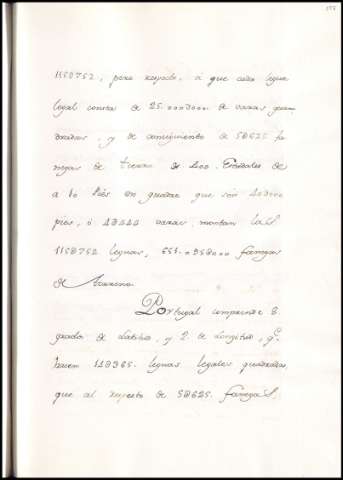 115D752, pero respeto, á que cada legua
legal consta de 25.000D000 de varas qua
dradas, y de consiguiente de 5D625 fa
negas de tierra de 400. Estadales de
a 10 Piés en quadro que son
pies, ó varas, montan las
115D752 leguas, fanegas
de
Portugal comprende 8.
grados de Latitud, y 2. de Longitud, q.ᵉ
hacen 11D365. leguas legales quadradas,
que al respeto de 5D625. fanegas.